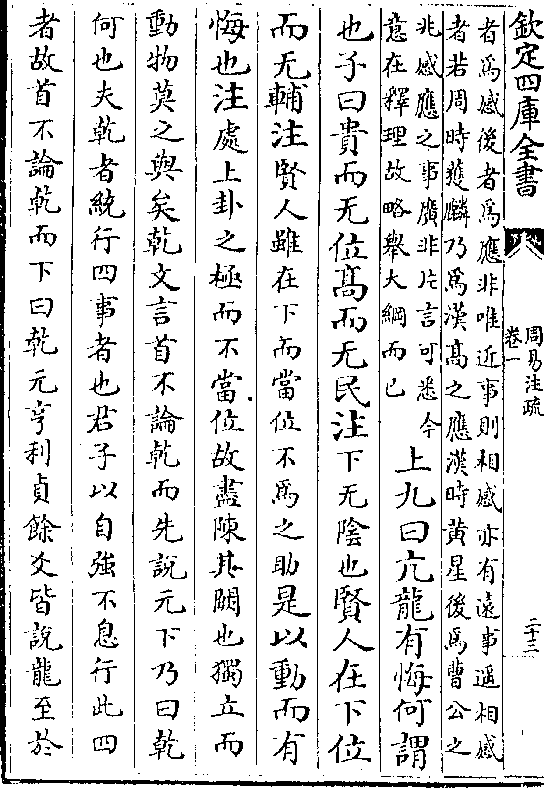 欽定四庫全書
周易注疏
卷一
二十三
者為感後者為應非唯近事則相感亦有遠事遥相感
者若周時獲麟乃為漢髙之應漢時黄星後為曹公之
兆感應之事廣非片言可悉今
意在釋理故略舉大綱而已
上九曰亢龍有悔何謂
也子曰貴而无位髙而无民注下无陰也賢人在下位
而无輔注賢人雖在下而當位不為之助是以動而有
悔也注處上卦之極而不當位故盡陳其闕也獨立而
動物莫之與矣乾文言首不論乾而先說元下乃曰乾
何也夫乾者統行四事者也君子以自強不息行此四
者故首不論乾而下曰乾元亨利貞餘爻皆說龍至於